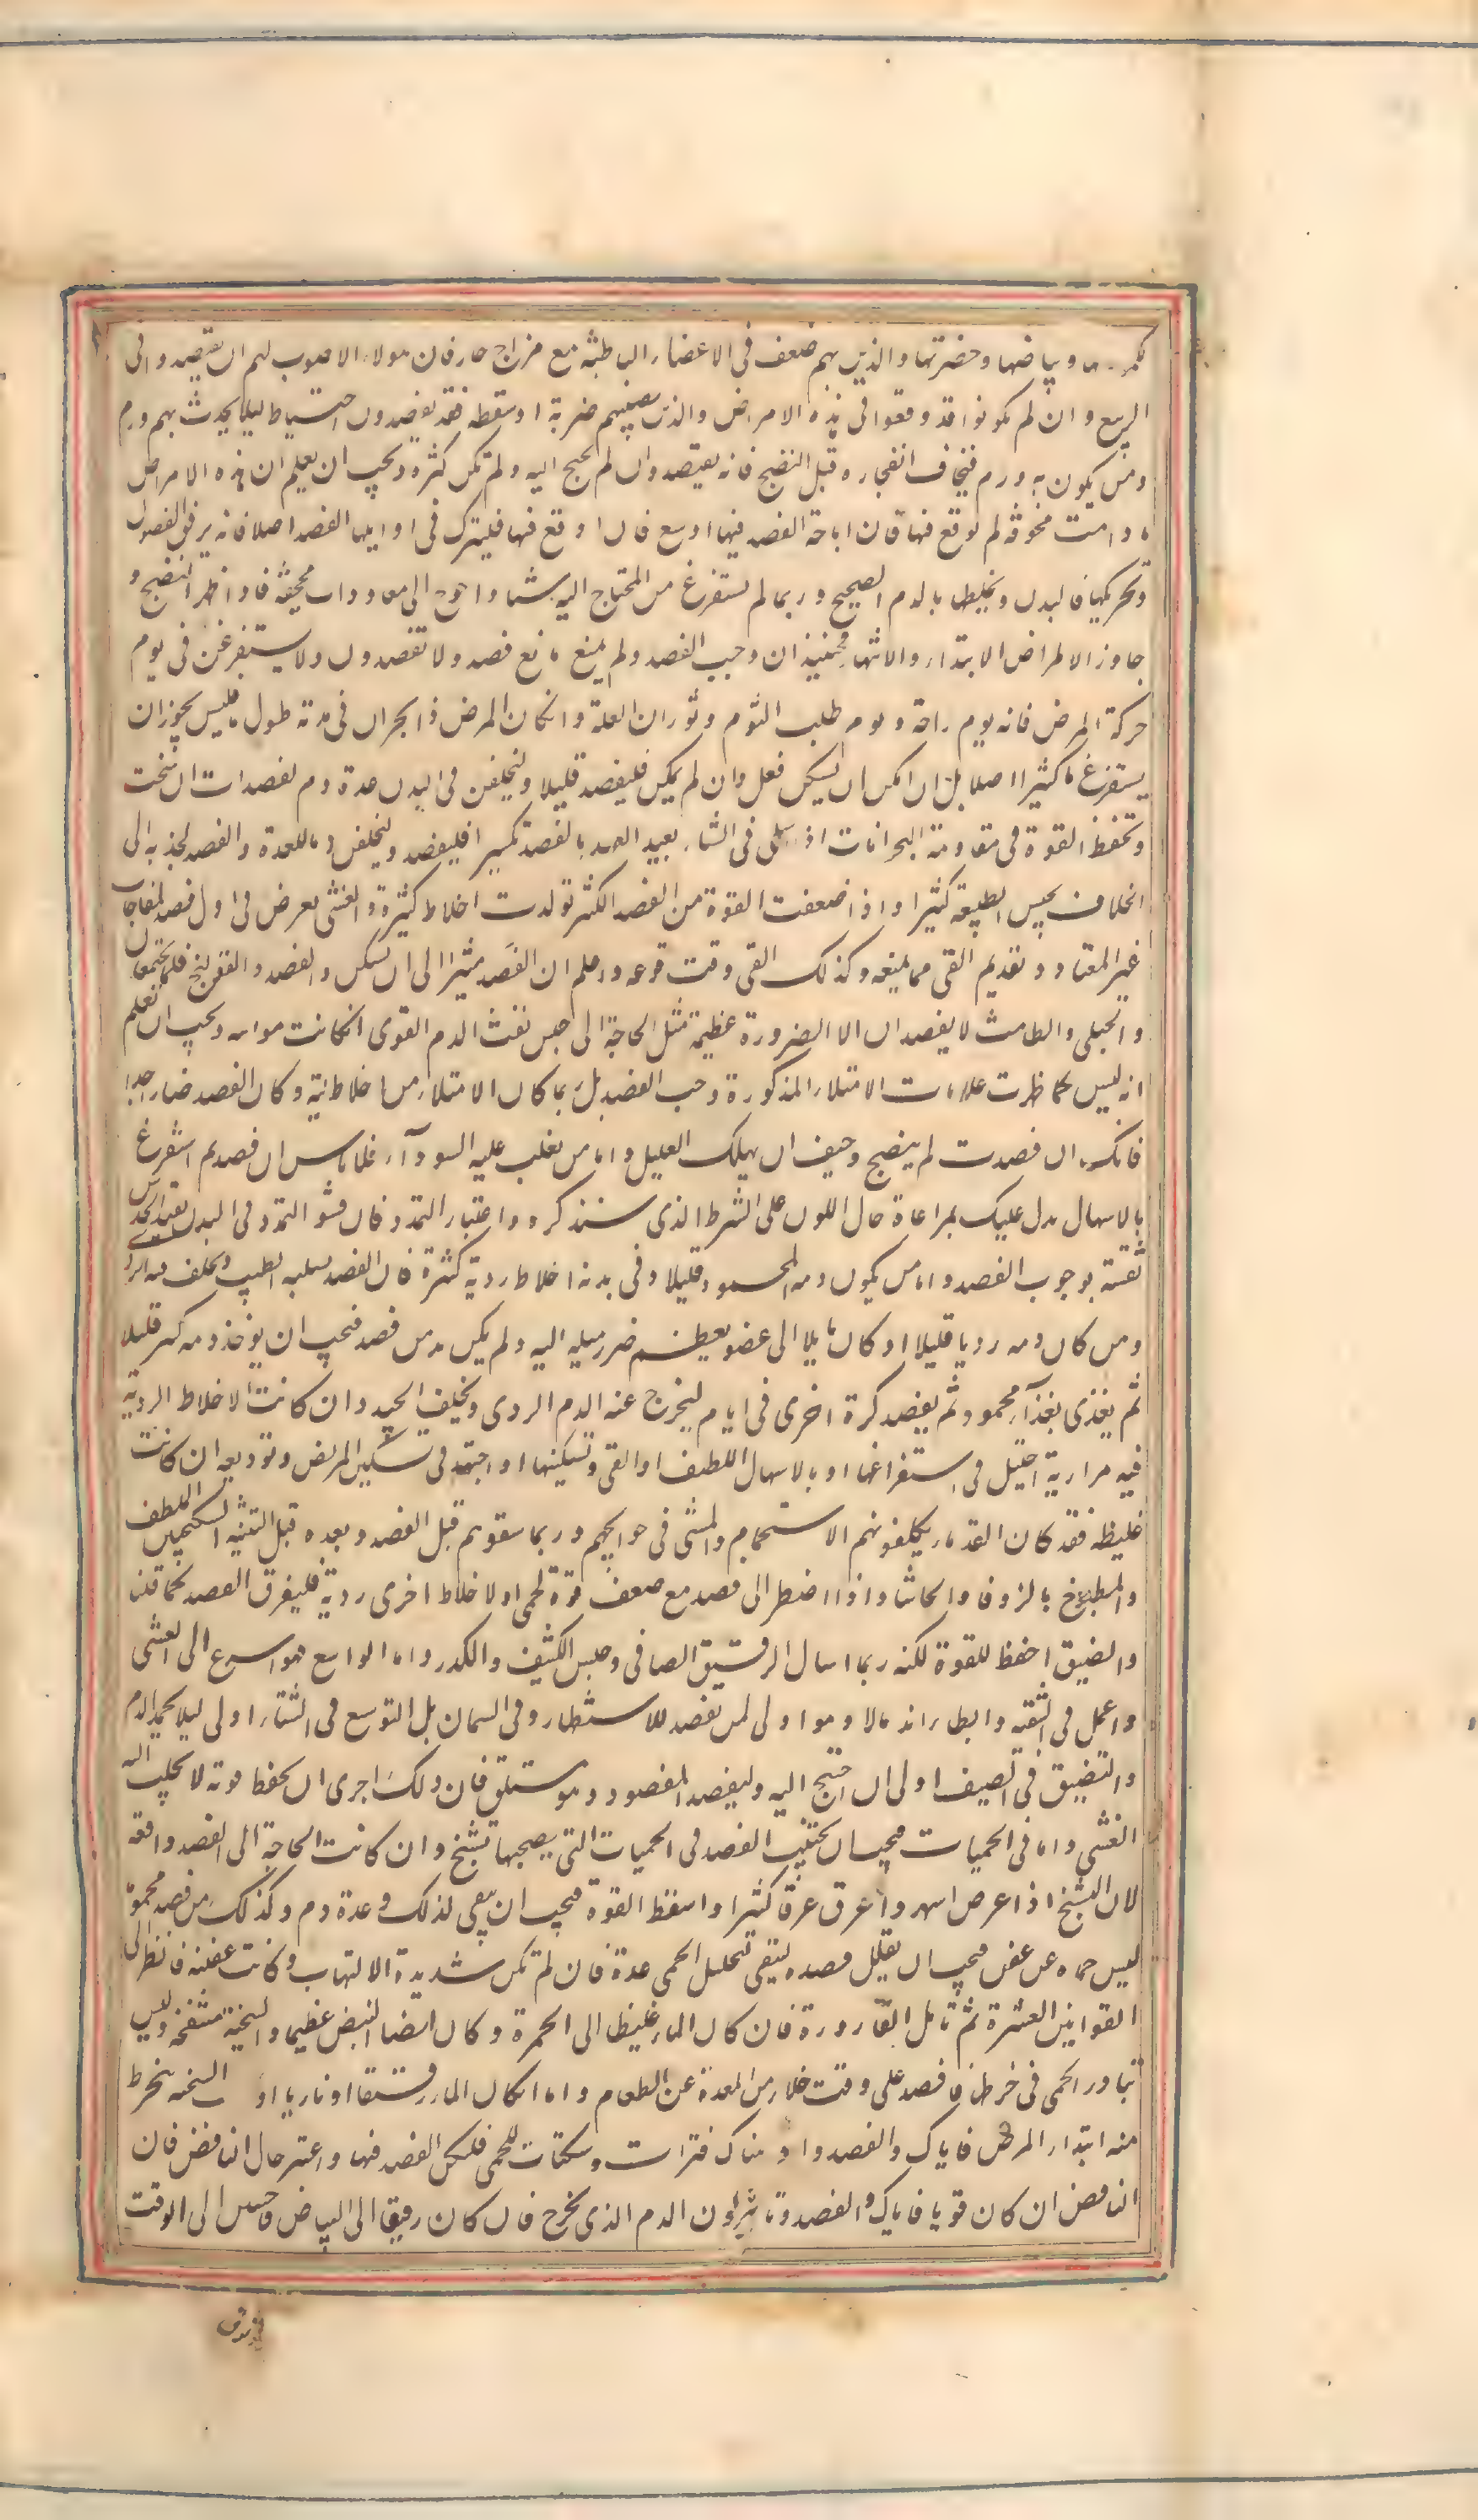 وبياضها وخضرتها والذين بهم ضعف فى الاعضاء الباطنة مع مزاج حار فان هولاء الاصوب لهم ان يفتصدوا فى
الربيع وان لم يكونوا قد وقعوا فى هذه الامراض والذين تصيبهم ضربة او سقطه فقد يفصدون احتياطا ليلا يحدث بهم ورم
ومن يكون به ورم فيخاف انفجاره قبل النضج فانه يفتصد وان لم يحتج اليه ولم تكن كثرة ويجب ان يعلم ان هذه الامراض
ما دامت مخوفة لم توقع فيها فان اباحة الفصد فيها اوسع فان اوقع فيها فليترك فى اوايلها الفصد اصلا فانه يرقق الفضول
ويحريكها فى البدن ويخلطها بالدم الصحيح وربما لم يستفرغ من المحتاج اليه شيئا واحوج الى معاودات مجحفة فاذا ظهر النضج و
جاوز الامراض الابتداء والانتها فحينيذ ان وجب الفصد ولم يمنع مانع فصد ولا تفصدن ولا يستفرغن فى يوم
حركة المرض فانه يوم راحة ويوم طلب النوم وثوران العلة وان كان المرض ذا بحران فى مدته طول ما فليس يجوز ان
يستفرغ دما كثيرا اصلا بل ان امكن ان يسكن فعل وان لم يكن فليفصد قليلا وليخلفن فى البدن عدة دم لفصدات ان سنحت
وتحفظ القوة فى مقاومة البحرانات اذا اشتكى فى الشتاء بعيد العهد بالفصد تكسيرا فليفصد وليخلفن دما للعدة والفصد يجذبه الى
الخلاف يحبس الطبيعة كثيرا واذا ضعفت القوة من الفصد الكثير تولدت اخلاط كثيرة والغشى يعرض فى اول فصد لمفاجاة
غير المعتاد وتقديم القى مما يمنعه وكذلك القى وقت وقوعه واعلم ان الفصد مثيرا الى ان يسكن والفصد والقولنج فلما يجتمعان
والحبلى والطامث لا يفصدان الا لضرورة عظيمة مثل الحاجة الى حبس نفث الدم القوى ان كانت مواتيه ويجب ان تعلم
انه ليس كما ظهرت علامات الامتلاء المذكورة وجب الفصد بل ربما كان الامتلاء من اخلاط نية وكان الفصد ضارا جدا
فانك ان فصدت لم ينضج وخيف ان يهلك العليل واما من يغلب عليه السوداء فلا باس ان فصد ثم استفرغ
بالاسهال بدل عليك بمراعاة حال اللون على الشرط الذى سنذكره واعتبار التمدد فان فشو التمدد فى البدن يفيد الحدس
ثقته بوجوب الفصد واما من يكون دمه المحمود قليلا وفى بدنه اخلاط ردية كثيرة فان الفصد يسلبه الطيب ويخلف فيه الردى
ومن كان دمه رديا قليلا او كان مايلا الى عضو يعظم ضرر ميله اليه ولم يكن بد من فصد فيجب ان يوخذ دمه قليلا
ثم يغذى بغذآء محمود ثم يفصد كرة اخرى فى ايام ليخرج عنه الدم الردى ويخلف الجيد وان كانت الاخلاط الردية
فيه مرارية احتيل فى استفراغها او بالاسهال اللطيف او القى وتسكينها او اجتهد فى تسكين المريض وتوديعه وان كانت
غليظه فقد كان القدماء يكلفونهم الاستحمام والمشى فى حوايجهم وربما سقوهم قبل الفصد وبعده قبل التثنيه السكنجبين الملطف
والمطبوخ بالزوفا والحاشا واذا اضطر الى فصد مع ضعف قوة لحمى او لاخلاط اخرى ردية فليفرق الفصد كما قلنا
والضيق احفظ للقوة لكنه ربما اسال الرقيق الصافى وحبس الكثيف والكدر واما الواسع فهو اسرع الى الغشى
واعمل فى التنقيه وابطاء اندمالا وهو اولى لمن يفصد للاستظهار وفى السمان بل التوسع فى الشتاء اولى ليلا يجمد الدم
والتضييق فى الصيف اولى ان احتيج اليه وليفصد المفصود وهو مستلق فان ذلك اجرى ان يحفظ قوته لا يجلب اليه
الغشى واما فى الحميات فيجب ان يجتنب الفصد فى الحميات التى يصحبها تشنج وان كانت الحاجة الى الفصد واقعة
لان التشنج اذا عرض اسهر واعرق عرقا كثيرا واسقط القوة فيجب ان يبقى لذلك عدة دم وكذلك من فصد محموما
ليس حماه عن عفن فيجب ان يقلل فصده ليبقى لتحليل الحمى عدة فان لم تكن شديدة الالتهاب وكانت عفنة فانظر الى
القوانين العشرة ثم تامل القارورة فان كان الماء غليظا الى الحمرة وكان ايضا النبض عظيما والسحنة منتفخة وليس
تبادر الحمى فى خرطها فافصد على وقت خلاء من المعدة عن الطعام واما ان كان الماء رقيقا او ناريا او السحنة تنخرط
منذ ابتداء المرض فاياك والفصد واذ هناك فترات وسكنات للحمى فليكن الفصد فيها واعتبر حال النافض فان
النافض ان كان قويا فاياك والفصد وتامل لون الدم الذى يخرج فان كان رقيقا الى البياض فاحبس الى الوقت